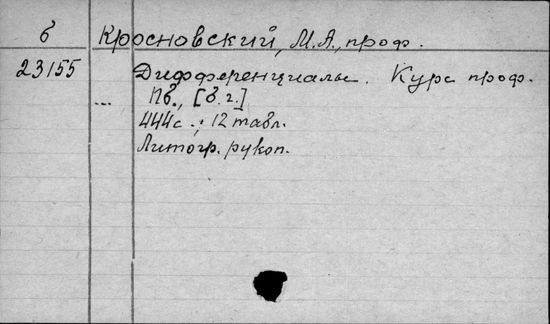 б Кросновский, М.А., проф.
23155 Дифференциалы. Курс проф.
... Пб., [б.г.]
444с.; 12 табл.
Литогр. рукоп.